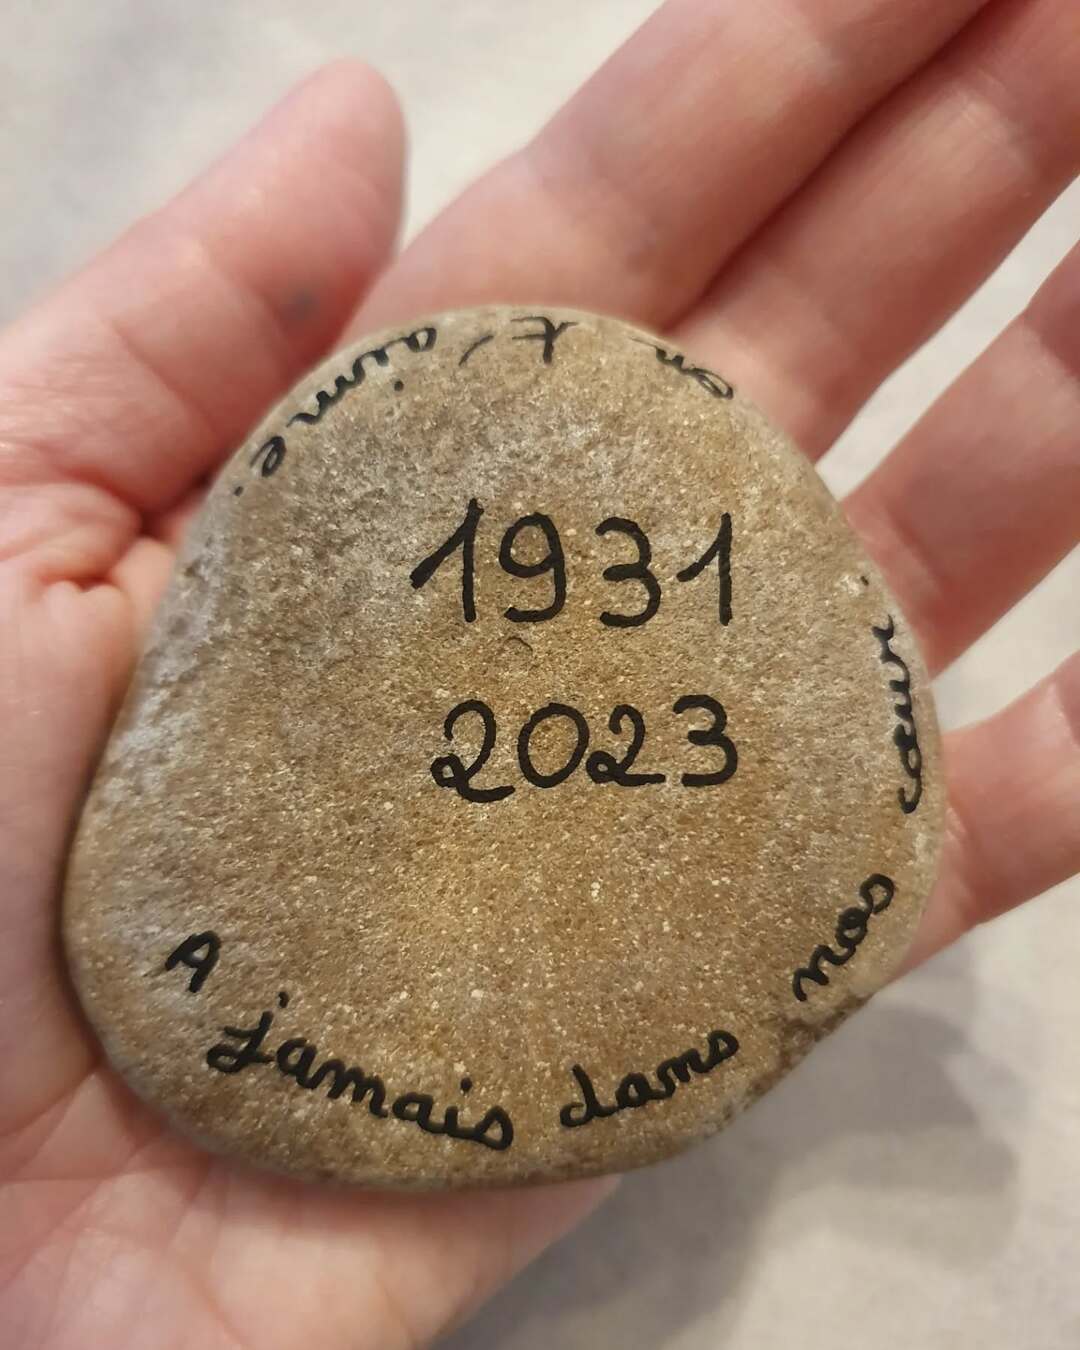 1931
2023
A jamais dans nos cœur.
on t'aime.